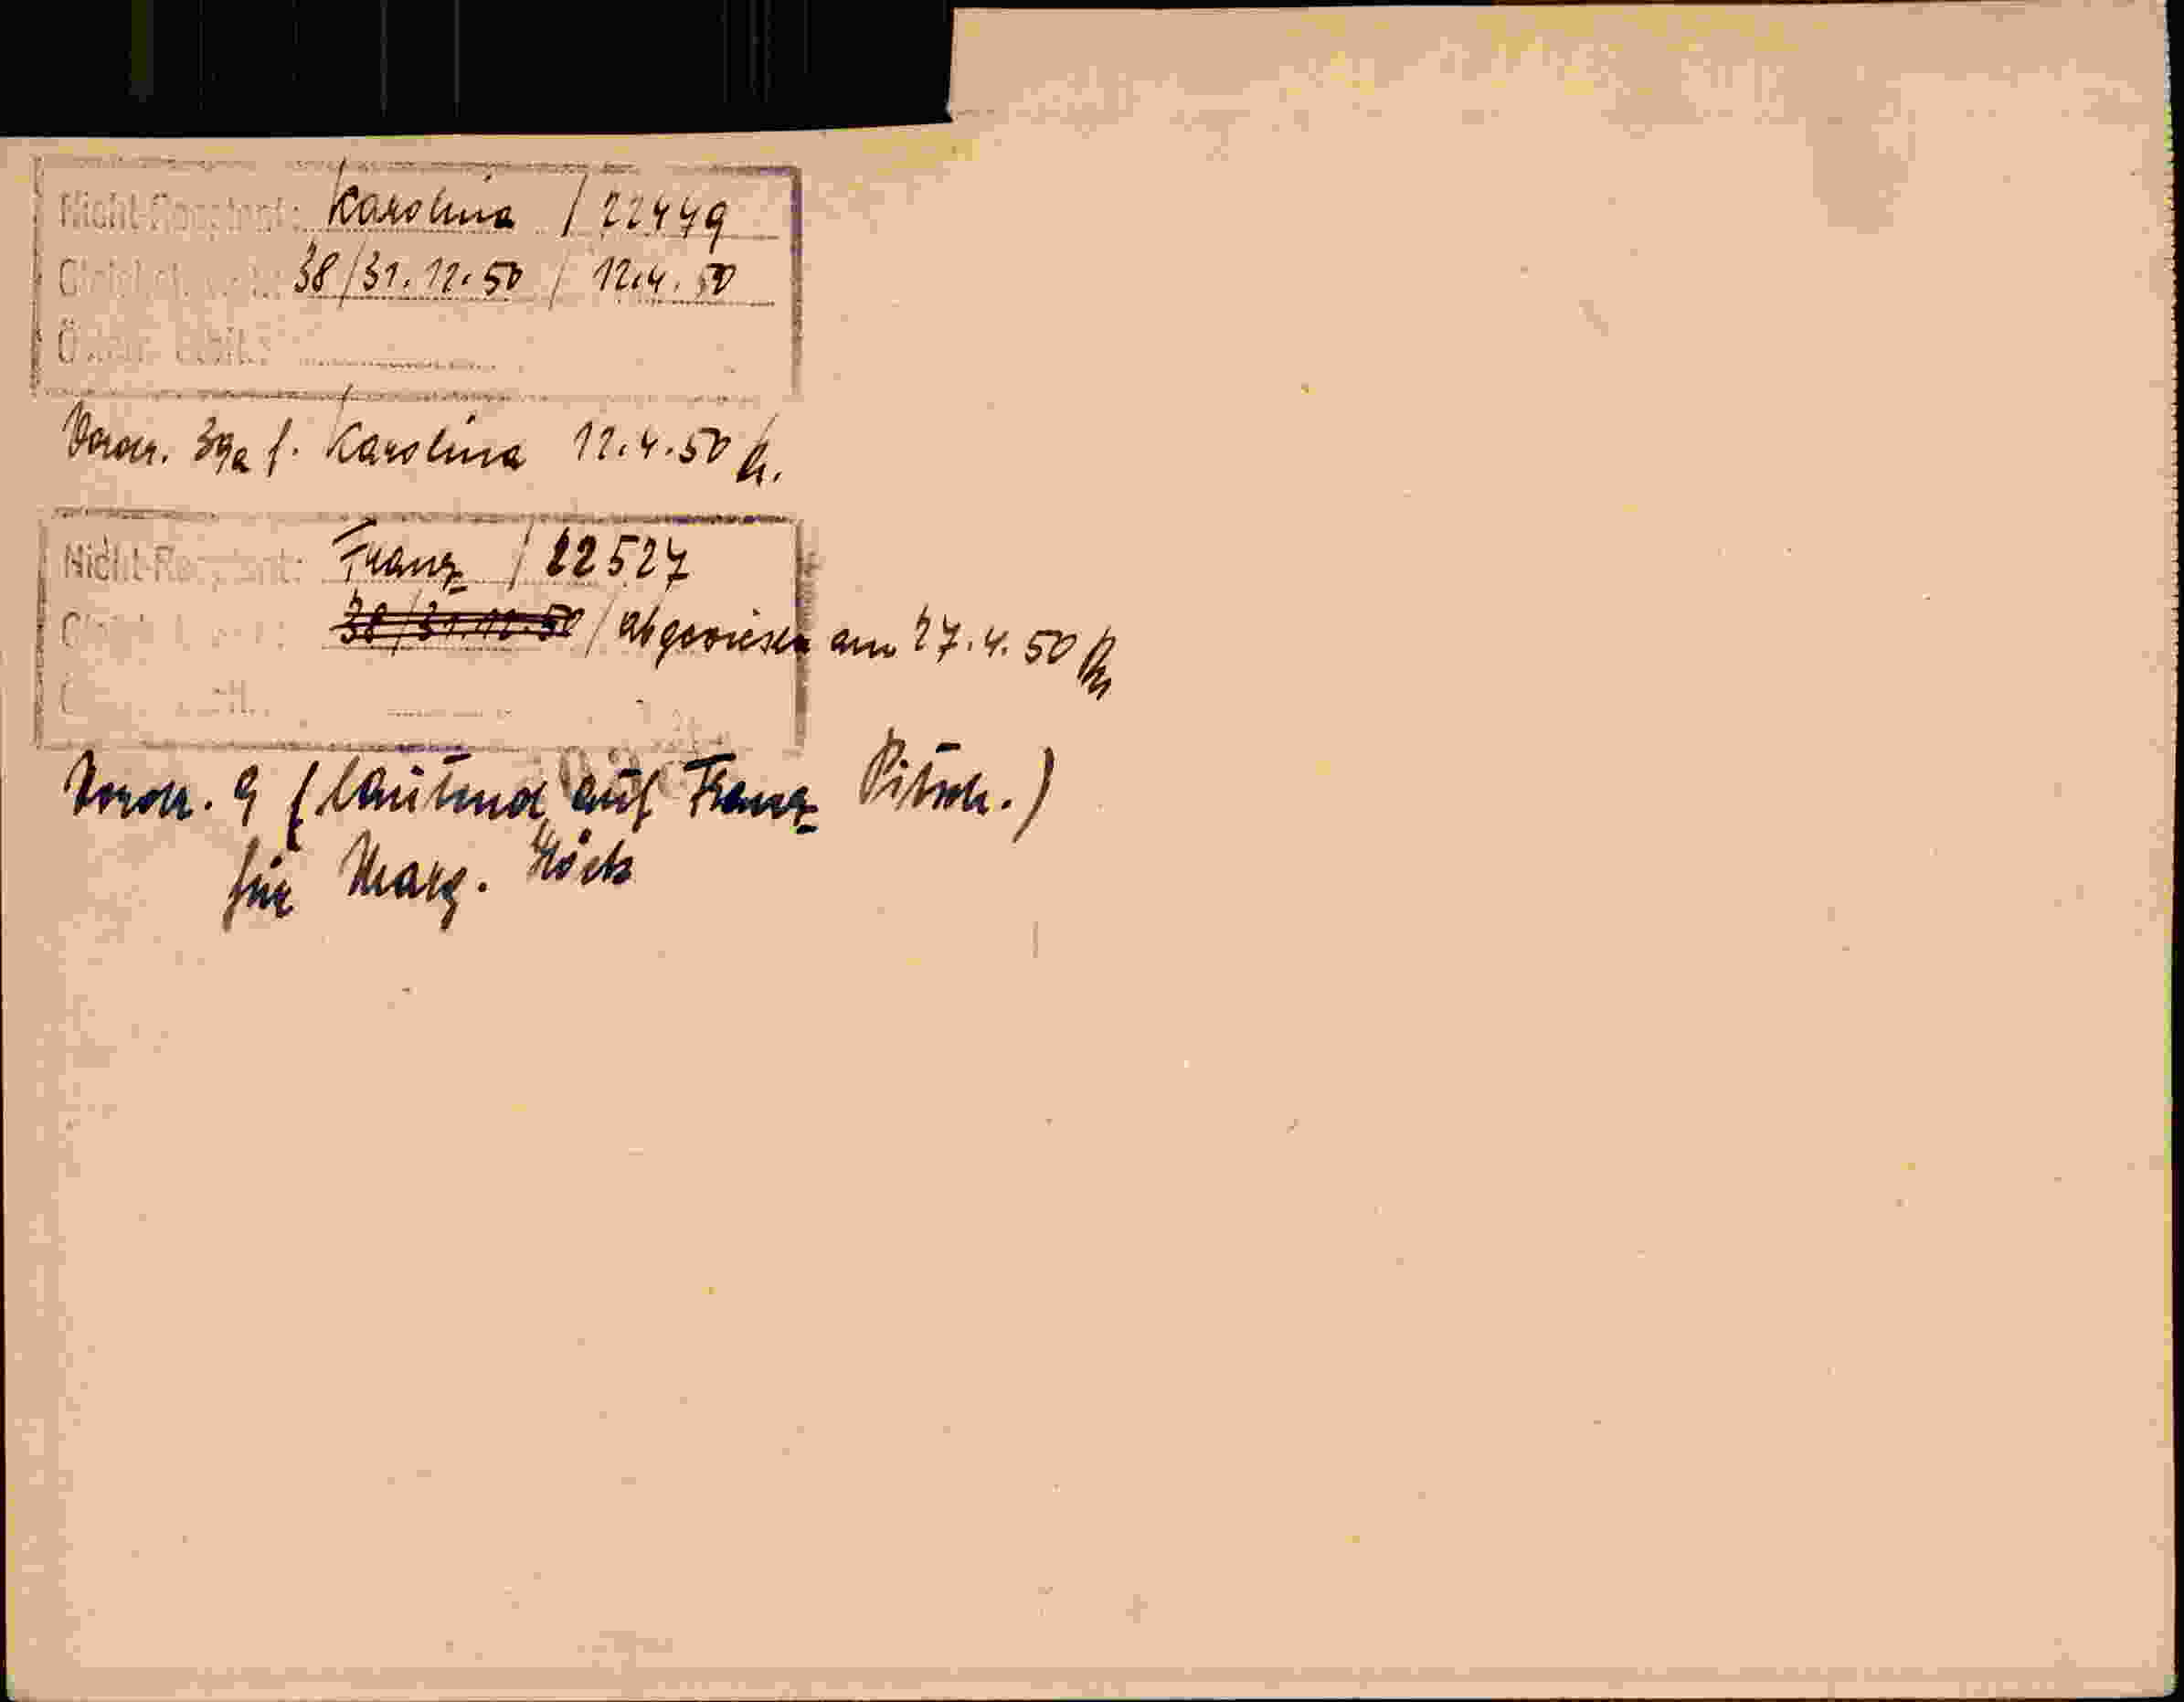 Nicht-Reoptant: Karolina / 22449
38/31.12.50 / 12.4.50
Vordr. 39a f. Karolina 12.4.50
Nicht-Reoptant: Franz / 22527
38/31.12.50 / abgewiesen am 27.4.50
Vordr. 9 (lautend auf Franz Pitsch.)
für Marg. Höck